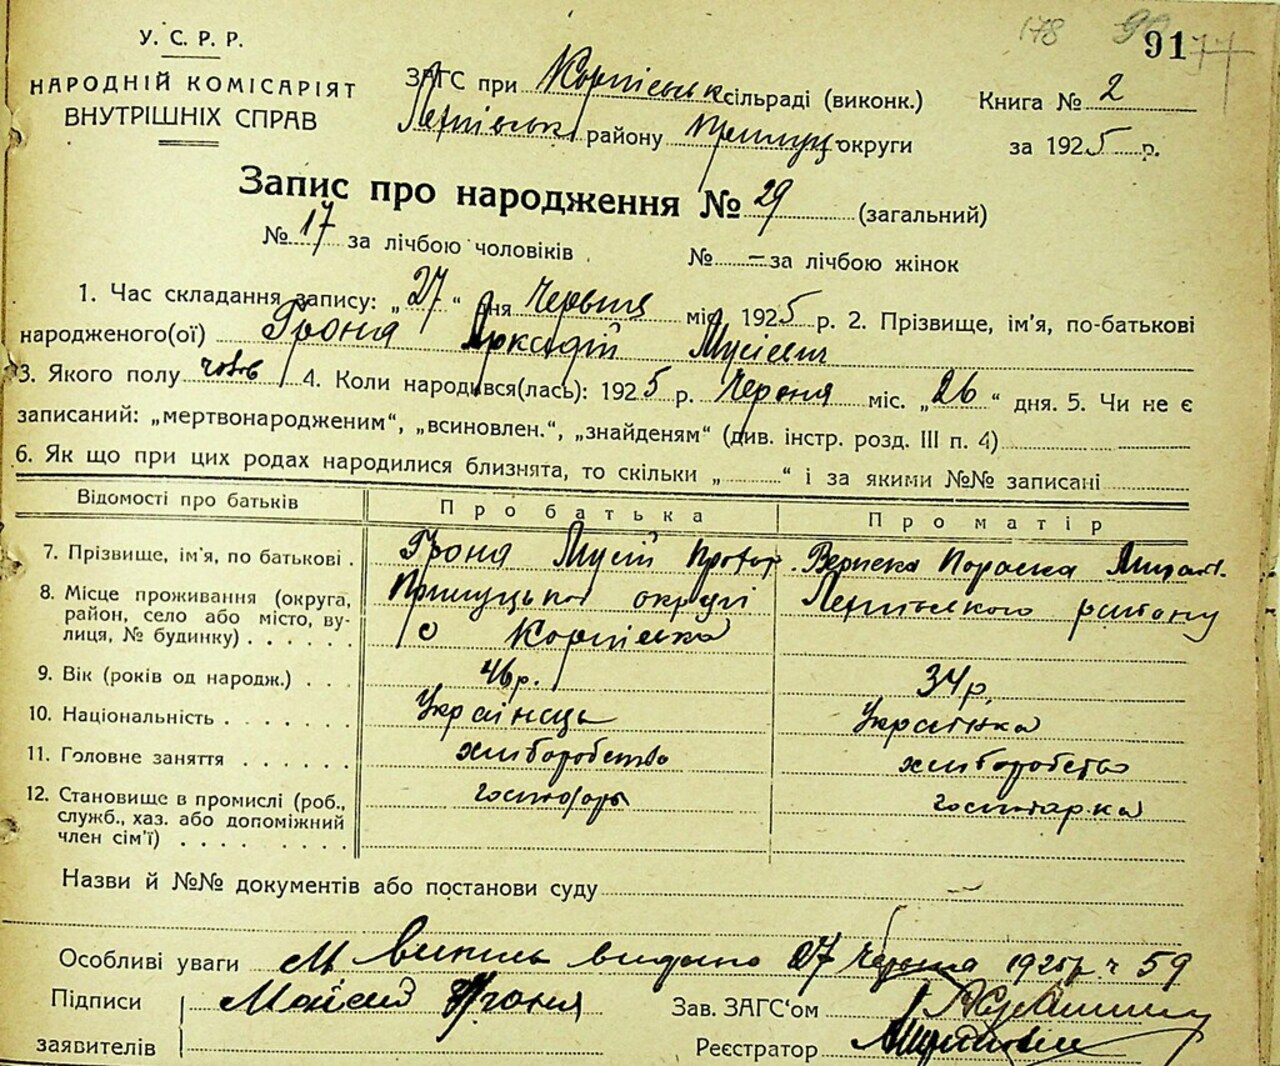 91
У. С. Р. Р.
НАРОДНІЙ КОМІСАРІЯТ
ВНУТРІШНІХ СПРАВ
ЗАГС при сільраді (виконк.)
району округи
Книга № 2
за 1925 р.
Запис про народження № 29 (загальний)
№ 17 за лічбою чоловіків № — за лічбою жінок
1. Час складання запису: „27“ дня Червня міс. 1925 р. 2. Прізвище, ім'я, по-батькові
народженого(ої) Гроня Аркадій Мусієвич
3. Якого полу чолов 4. Коли народився(лась): 1925 р. Червня міс. „26“ дня. 5. Чи не є
записаний: „мертвонародженим“, „всиновлен.“, „знайденям“ (див. інстр. розд. III п. 4)
6. Як що при цих родах народилися близнята, то скільки „ “ і за якими №№ записані
Відомості про батьків Про батька Про матір
7. Прізвище, ім'я, по батькові . Гроня Мусій Параска
8. Місце проживання (округа, округі району
район, село або місто, ву-
лиця, № будинку) . . . . . с
9. Вік (років од народж.) . . . 46 р. 34 р.
10. Національність . . . . . . . Українець Українка
11. Головне заняття . . . . . . хліборобство хліборобство
12. Становище в промислі (роб., господарь господарка
служб., хаз. або допоміжний
член сім'ї) . . . . . . . .
Назви й №№ документів або постанови суду —
Особливі уваги випись видано 27 червня 1925 р. ч 59
Підписи Мойсей Гроня Зав. ЗАГС'ом
заявителів Реєстратор